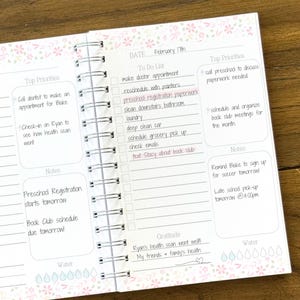 Top Priorities
Call dentist to make an
appointment for Blake.
Check-in on Ryan to
see how health scan
went
Notes
Preschool Registration
starts tomorrow!
Book Club schedule
due tomorrow!
Water
DATE February 17th
To Do List
make doctor appointment
reschedule with painters
preschool registration paperwork
clean downstairs bathroom
laundry
deep clean car
schedule grocery pick up
check emails
text Stacy about book club
Gratitude
Ryan's health scan went well!
My friends + family's health
Top Priorities
call preschool to discuss
paperwork needed
schedule and organize
book club meetings for
the month.
Notes
Remind Blake to sign up
for soccer tomorrow!
Late school pick up
tomorrow @4:00pm
Water